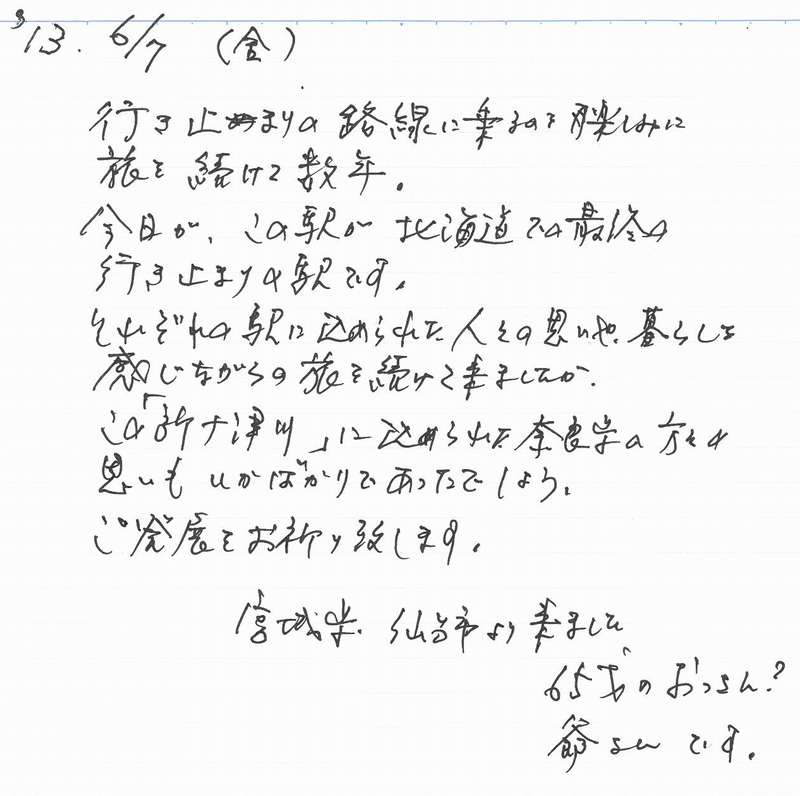 '13. 6/7 (金)
行き止まりの路線に乗るのを楽しみに
旅を続けて数年。
今日が、この駅が北海道での最終の
行き止まりの駅です。
それぞれの駅に込められた人々の思いや、暮らしを
感じながらの旅を続けて来ましたが、
この「新十津川」に込められた奈良県の方々の
思いもいかばかりであったでしょう。
ご発展をお祈り致します。
宮城県 仙台市より来ました
65才のおっさん?
爺さんです。